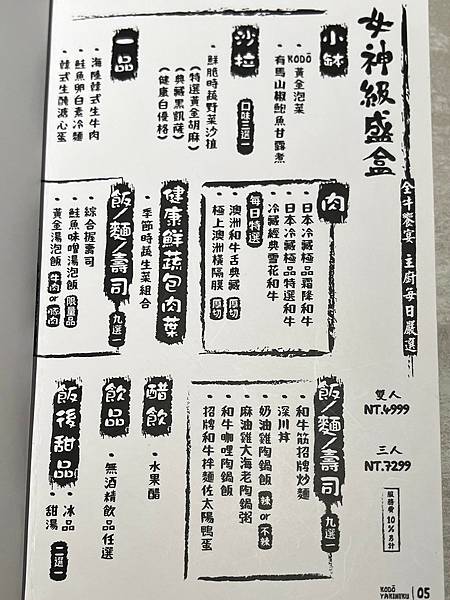 女神級盛盒
全牛饗宴 主廚每日嚴選
雙人
NT.4999
三人
NT.7299
服務費10%另計
小缽
• KODŌ黃金泡菜
• 有馬山椒鮑魚甘露煮
沙拉
口味三選一
• 鮮脆時蔬野菜沙拉
(特選黃金胡麻)
(典藏黑凱薩)
(健康白優格)
一品
• 海陸韓式生牛肉
• 鮭魚卵白素冷麵
• 韓式生醃溏心蛋
肉
• 日本冷藏極品霜降和牛
• 日本冷藏極品特選和牛
• 冷藏經典雪花和牛
每日特選
• 澳洲和牛舌典藏 厚切
• 極上澳洲橫隔膜 厚切
健康鮮蔬包肉葉
• 季節時蔬生菜組合
飯/麵/壽司 九選一
• 綜合握壽司
• 鮭魚味噌湯泡飯 限量品
• 黃金湯泡飯 牛肉 or 豚肉
飯/麵/壽司 九選一
• 和牛筋招牌炒麵
• 深川丼
• 奶油雞陶鍋飯 辣 or 不辣
• 麻油雞大海老陶鍋粥
• 和牛咖哩陶鍋飯
• 招牌和牛拌麵佐太陽鴨蛋
醋飲
• 水果醋
飲品
• 無酒精飲品任選
飯後甜品
• 冰品
• 甜湯
二選一
KODŌ
YAKINIKU
05